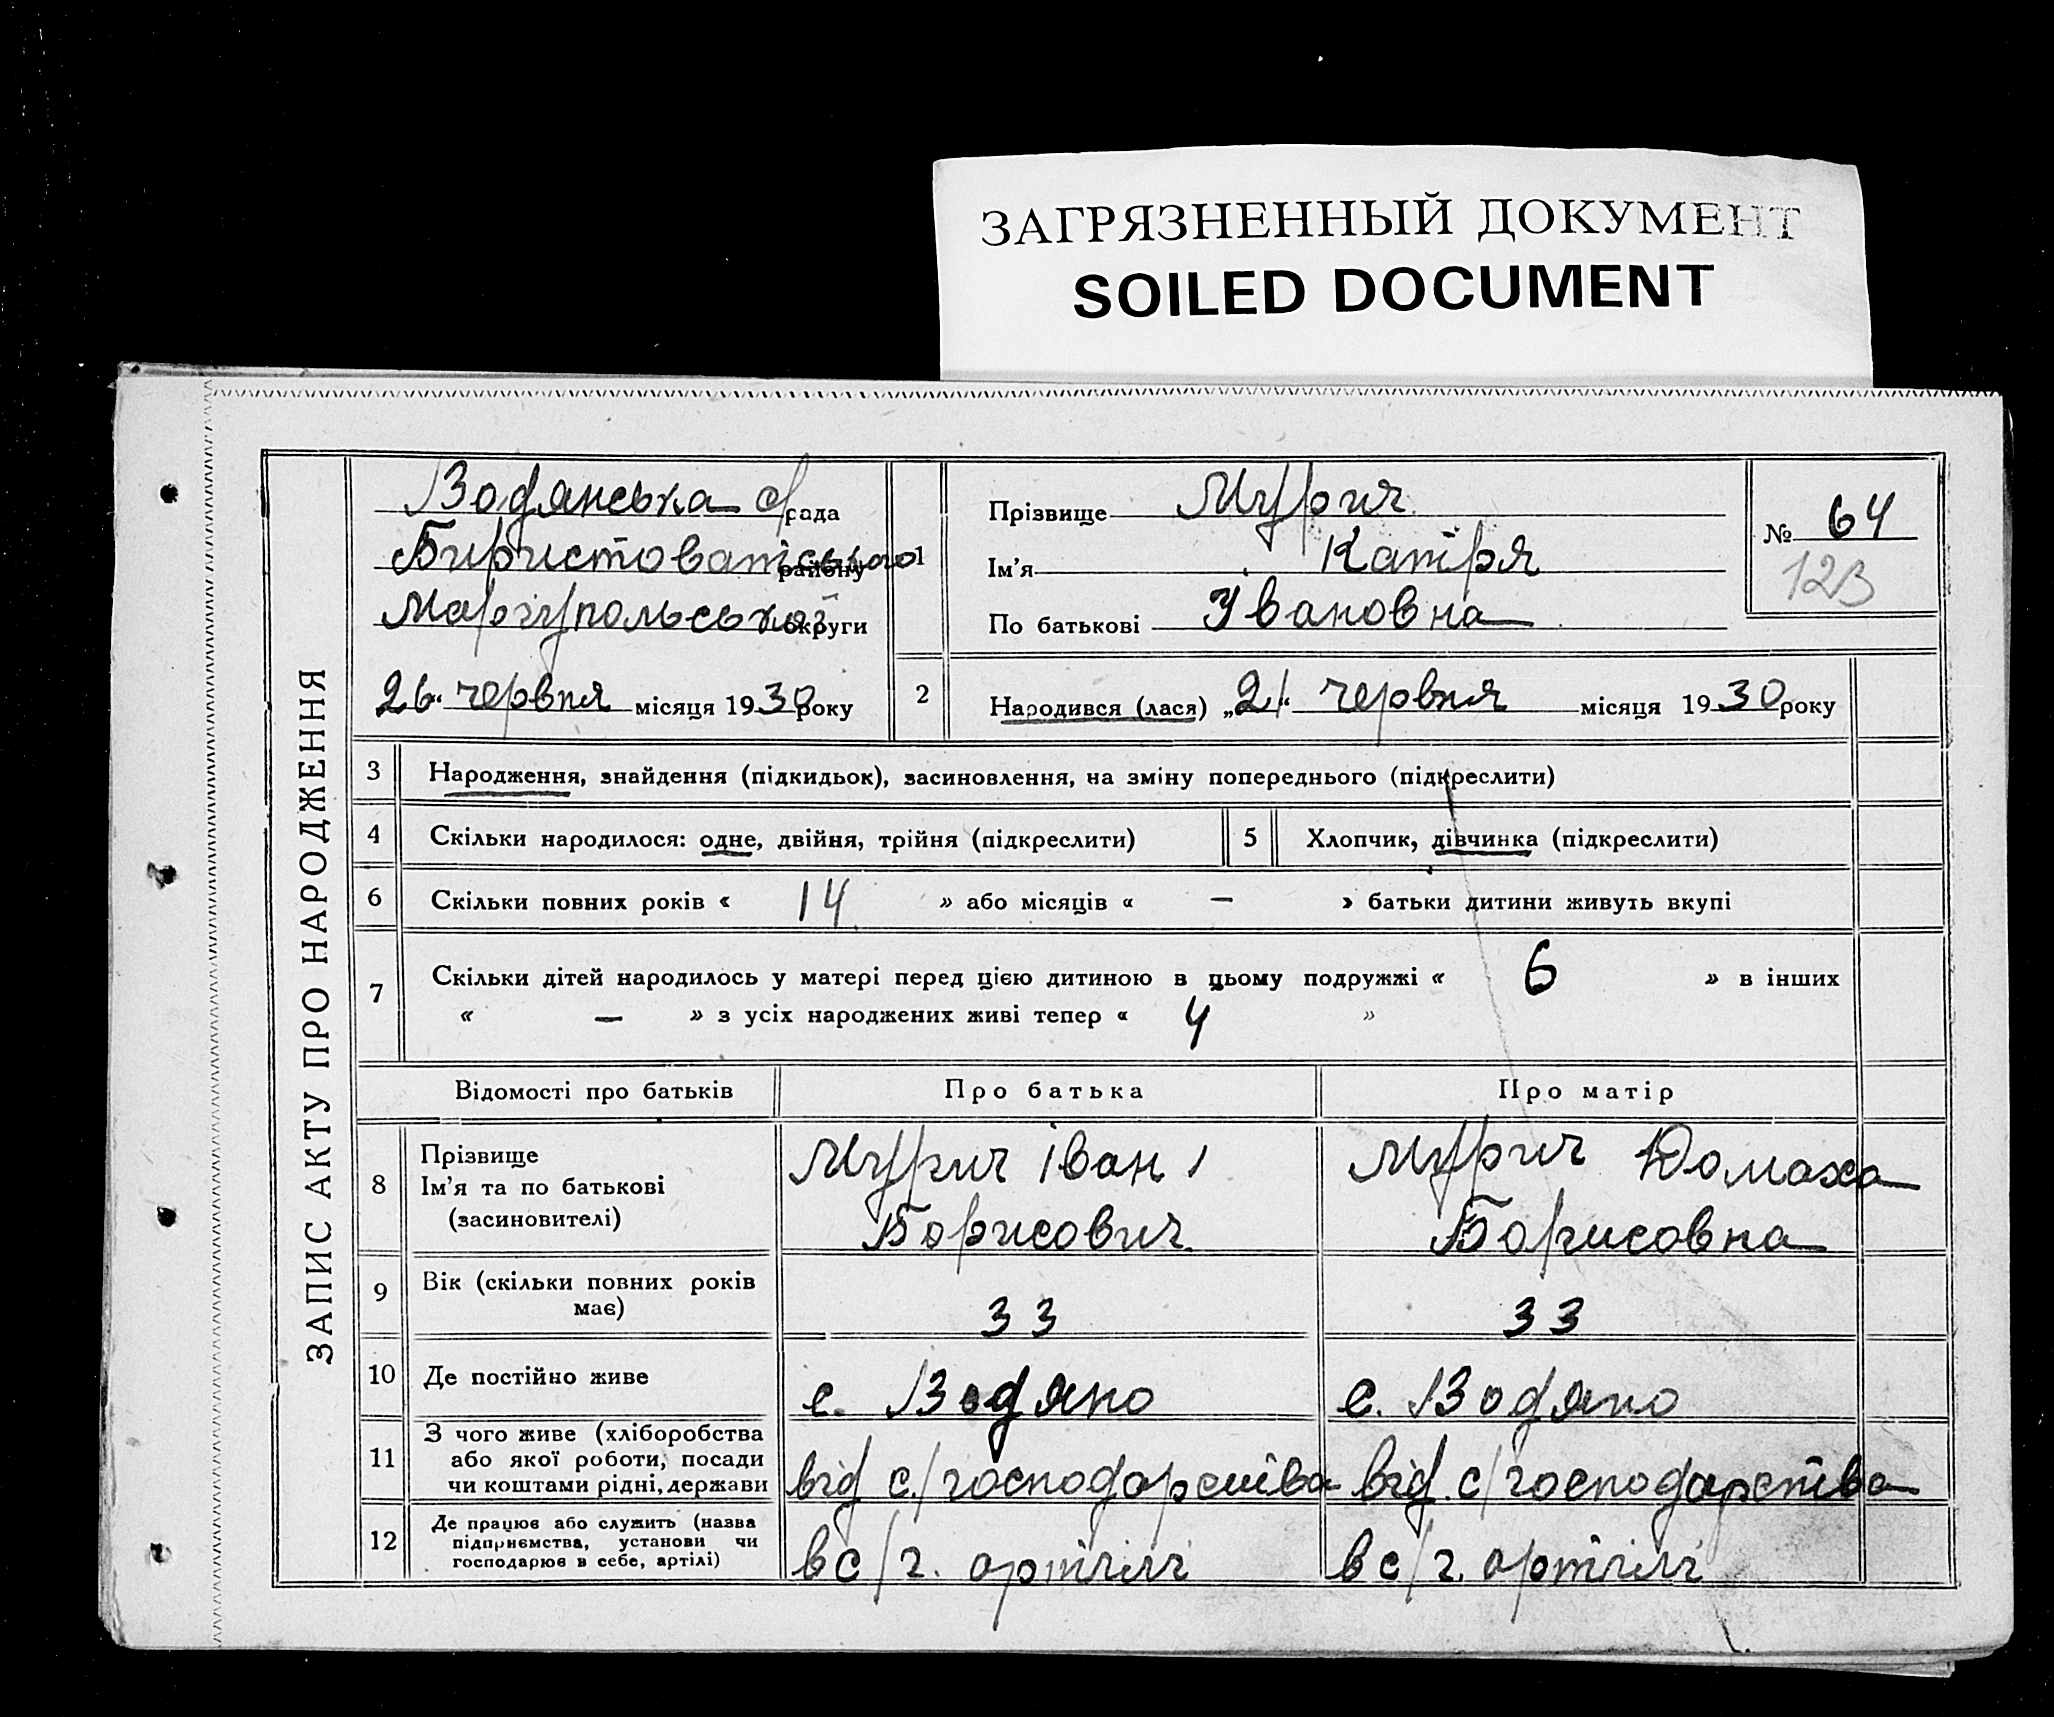 ЗАГРЯЗНЕННЫЙ ДОКУМЕНТ
SOILED DOCUMENT
ЗАПИС АКТУ ПРО НАРОДЖЕННЯ
Водянська с/рада
району
Маріупольської округи
26 червня місяця 1930 року
1
Прізвище Мурич
Ім'я Катря
По батькові Івановна
№ 64
123
2 Народився (лася) „21“ червня місяця 1930 року
3 Народження, знайдення (підкидьок), засиновлення, на зміну попереднього (підкреслити)
4 Скільки народилося: одне, двійня, трійня (підкреслити) 5 Хлопчик, дівчинка (підкреслити)
6 Скільки повних років « 14 » або місяців « — » батьки дитини живуть вкупі
7 Скільки дітей народилось у матері перед цією дитиною в цьому подружжі « 6 » в інших
« — » з усіх народжених живі тепер « 4 »
Відомості про батьків Про батька Про матір
8 Прізвище
Ім'я та по батькові
(засиновителі)
Мурич Іван
Борисович
Мурич Домаха
Борисовна
9 Вік (скільки повних років
має)
33 33
10 Де постійно живе с. Водяно с. Водяно
11 З чого живе (хліборобства
або якої роботи, посади
чи коштами рідні, держави
від с/господарства від с/господарства
12 Де працює або служить (назва
підприємства, установи чи
господарює в себе, артілі)
в с/г. артілі в с/г. артілі